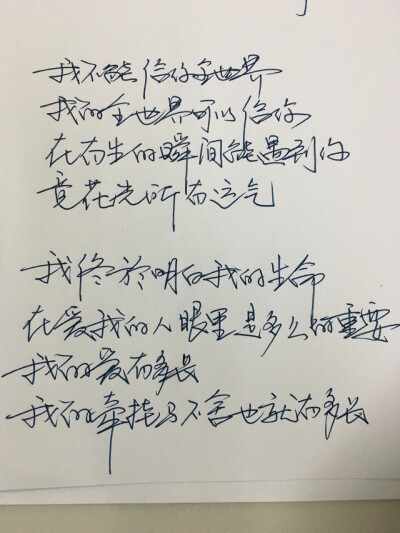 我不能给你全世界
我的全世界可以给你
在有生的瞬间能遇到你
竟花光所有运气
我终於明白我的生命
在爱我的人眼里是多么的重要
我的爱有多长
我的牵挂与不舍也就有多长